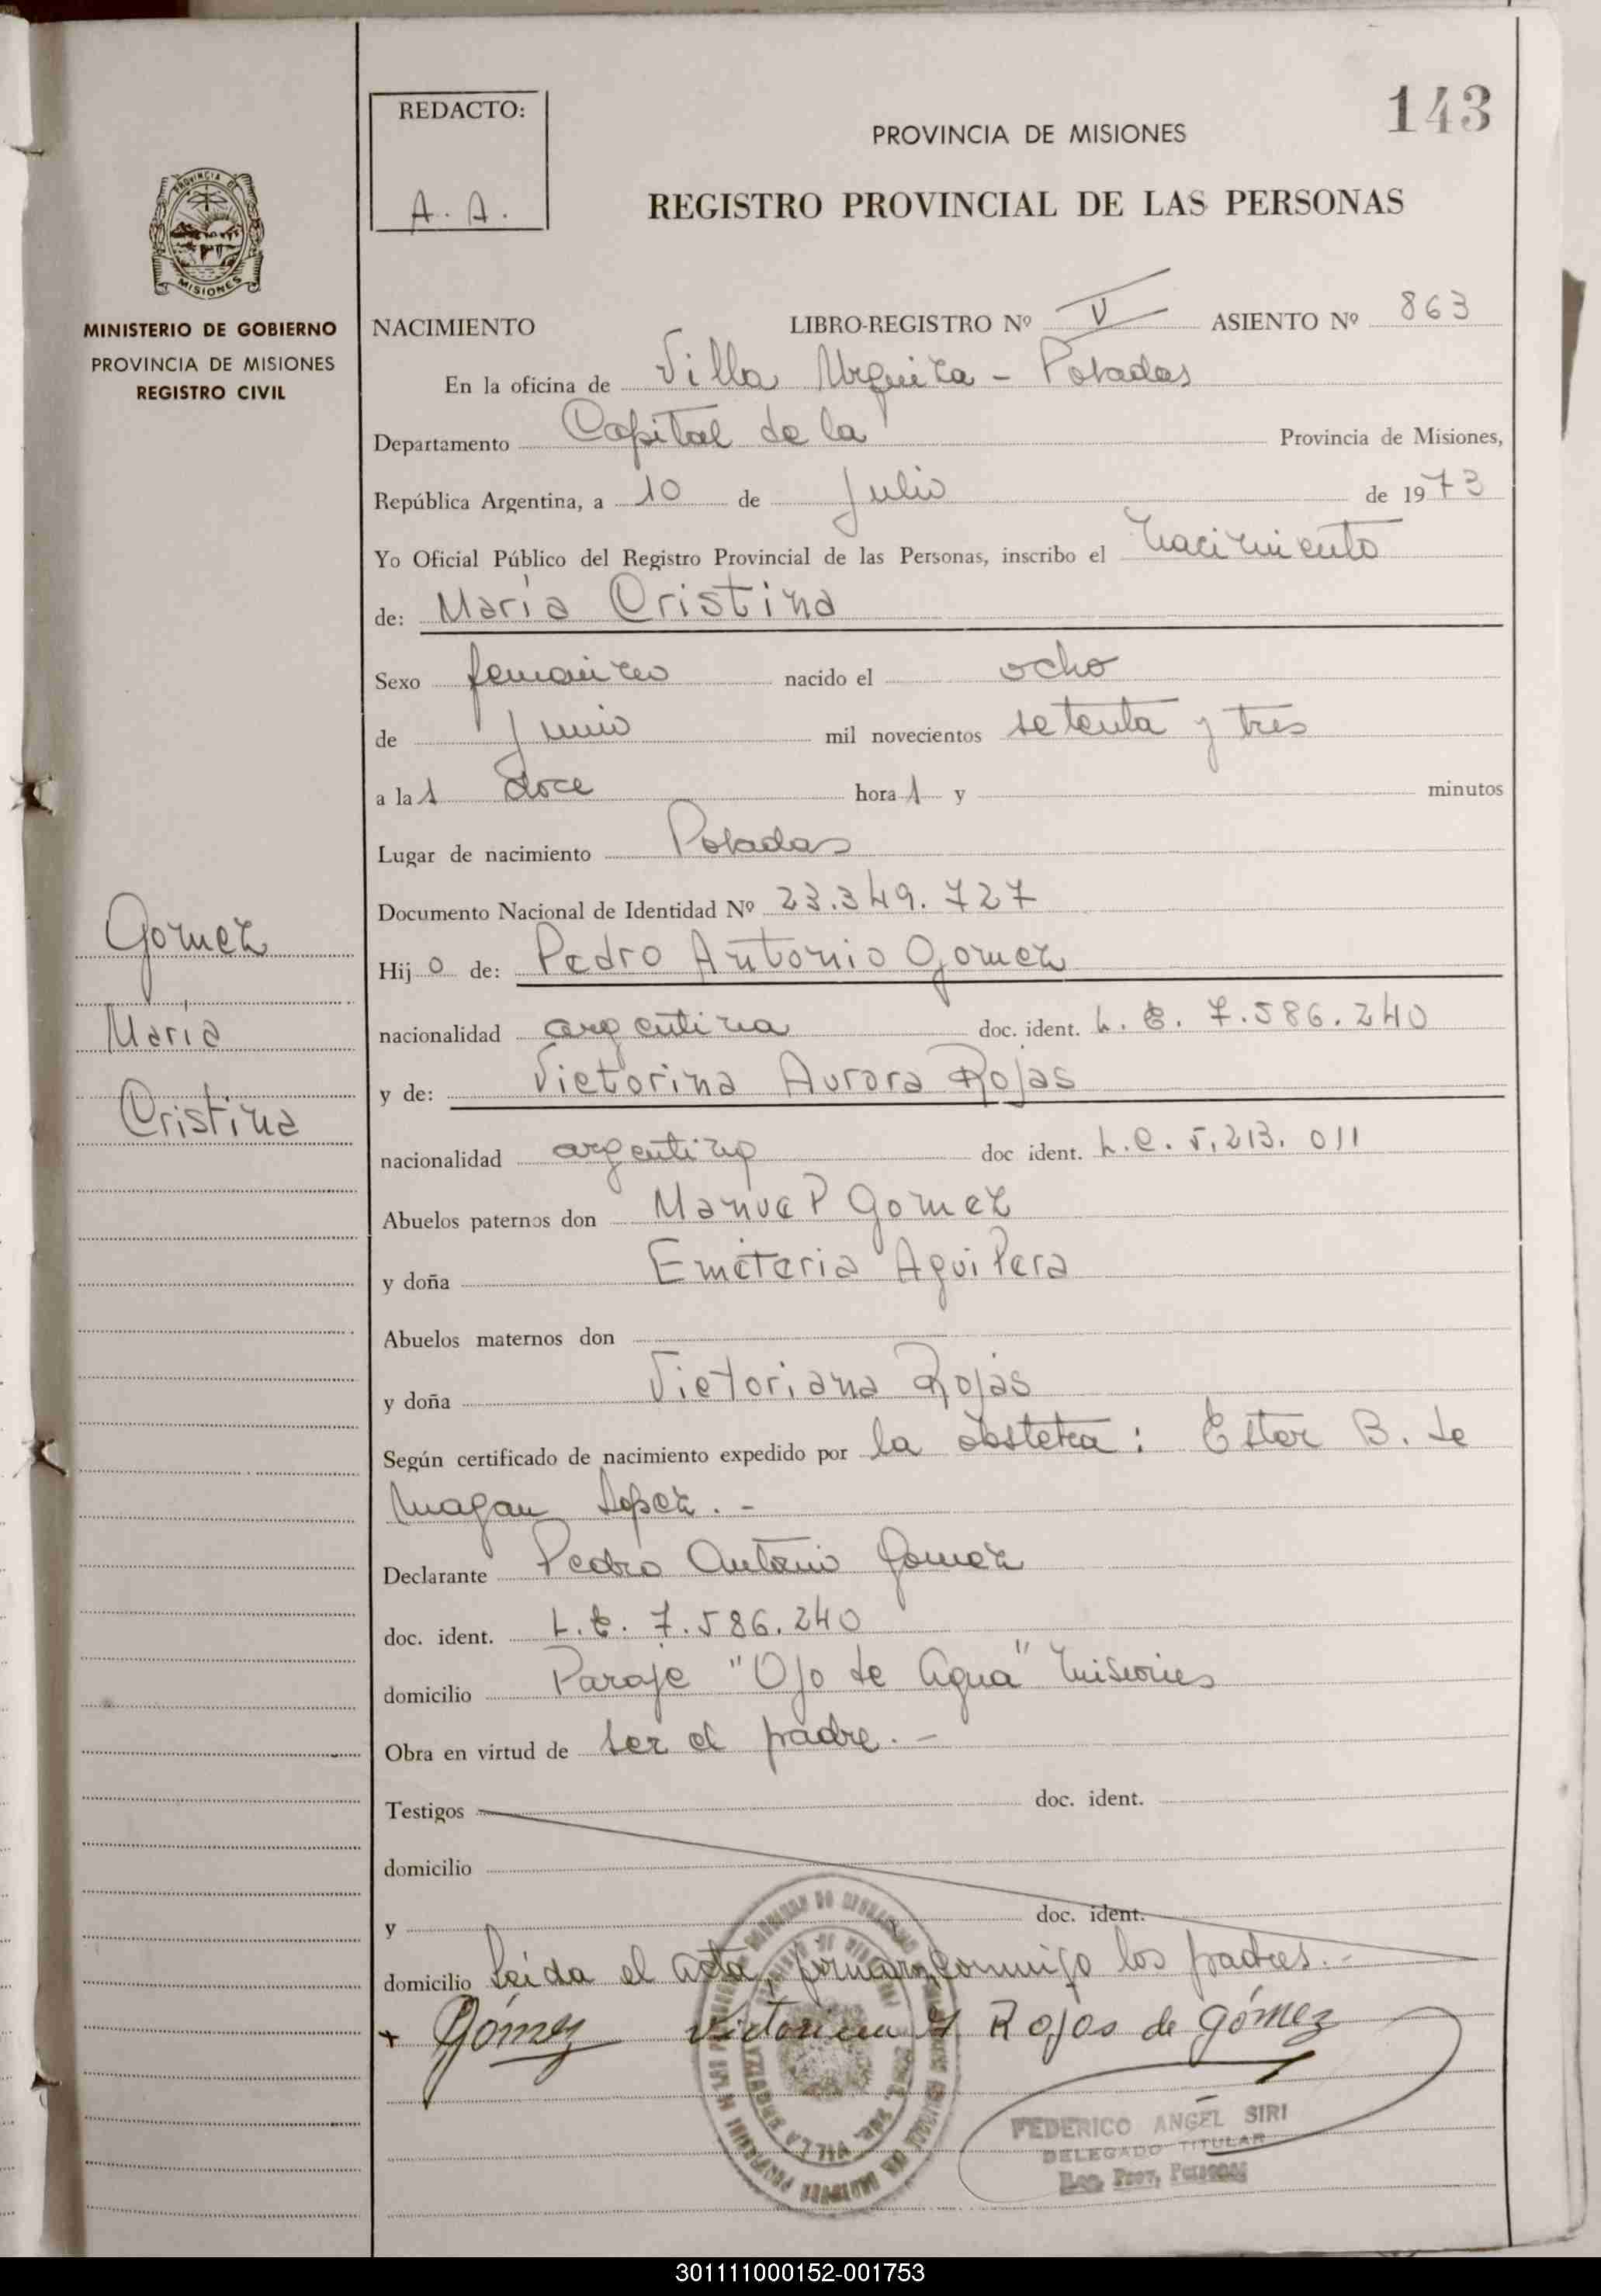 143
REDACTO:
A. A.
PROVINCIA DE MISIONES
REGISTRO PROVINCIAL DE LAS PERSONAS
PROVINCIA DE
MISIONES
MINISTERIO DE GOBIERNO
PROVINCIA DE MISIONES
REGISTRO CIVIL
NACIMIENTO LIBRO-REGISTRO Nº V ASIENTO Nº 863
En la oficina de Villa Urquiza - Posadas
Departamento Capital de la Provincia de Misiones,
República Argentina, a 10 de Julio de 1973
Yo Oficial Público del Registro Provincial de las Personas, inscribo el nacimiento
de: María Cristina
Sexo femenino nacido el ocho
de junio mil novecientos setenta y tres
a la s doce hora s y minutos
Lugar de nacimiento Posadas
Documento Nacional de Identidad Nº 23.349.727
Gomez
María
Cristina
Hij o de: Pedro Antonio Gomez
nacionalidad argentina doc. ident. L. E. 7.586.240
y de: Victorina Aurora Rojas
nacionalidad argentina doc ident. L.C. 5.213.011
Abuelos paternos don Manuel Gomez
y doña Emeteria Aguilera
Abuelos maternos don
y doña Victoriana Rojas
Según certificado de nacimiento expedido por la obstetra: Ester B. de
Magan Lopez. -
Declarante Pedro Antonio Gomez
doc. ident. L.E. 7.586.240
domicilio Paraje "Ojo de Agua" Misiones
Obra en virtud de ser el padre. -
Testigos doc. ident.
domicilio
y doc. ident.
domicilio Leida el acta, firman conmigo los padres. -
Gómez Victorina A Rojas de gómez
FEDERICO ANGEL SIRI
DELEGADO TITULAR
Reg. Prov. Personas
301111000152-001753